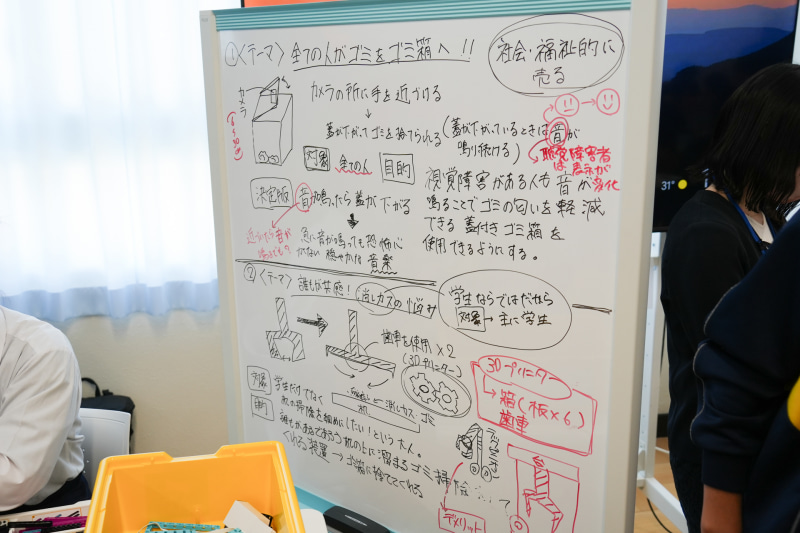 ①〈テーマ〉全ての人がゴミをゴミ箱へ!!
社会・福祉的に
売る
カメラ
カメラの所に手を近づける
↓
蓋が下がってゴミを捨てられる(蓋が下がっているときは音が
鳴り続ける)
聴覚障害者
は表示が
変化
対象 全ての人
目的
視覚障害がある人も音が
鳴ることでゴミの匂いを軽減
できる蓋付きゴミ箱を
使用できるようにする。
決定版 音が鳴ったら蓋が下がる
急に音が鳴っても恐怖心
がない穏やかな音楽
②〈テーマ〉誰もが共感!消しカスの悩み
学生ならではだから
対象→主に学生
歯車を使用×2
(3Dプリンター)
消しカス・ゴミ
机
3Dプリンター
→箱(板×6)
歯車
対象
学生だけでなく
机の掃除を細めにしたい!という大人。
誰もがあるであろう机の上に溜まるゴミ掃除
くれる装置→ゴミ箱に捨ててくれる
デメリット
31°